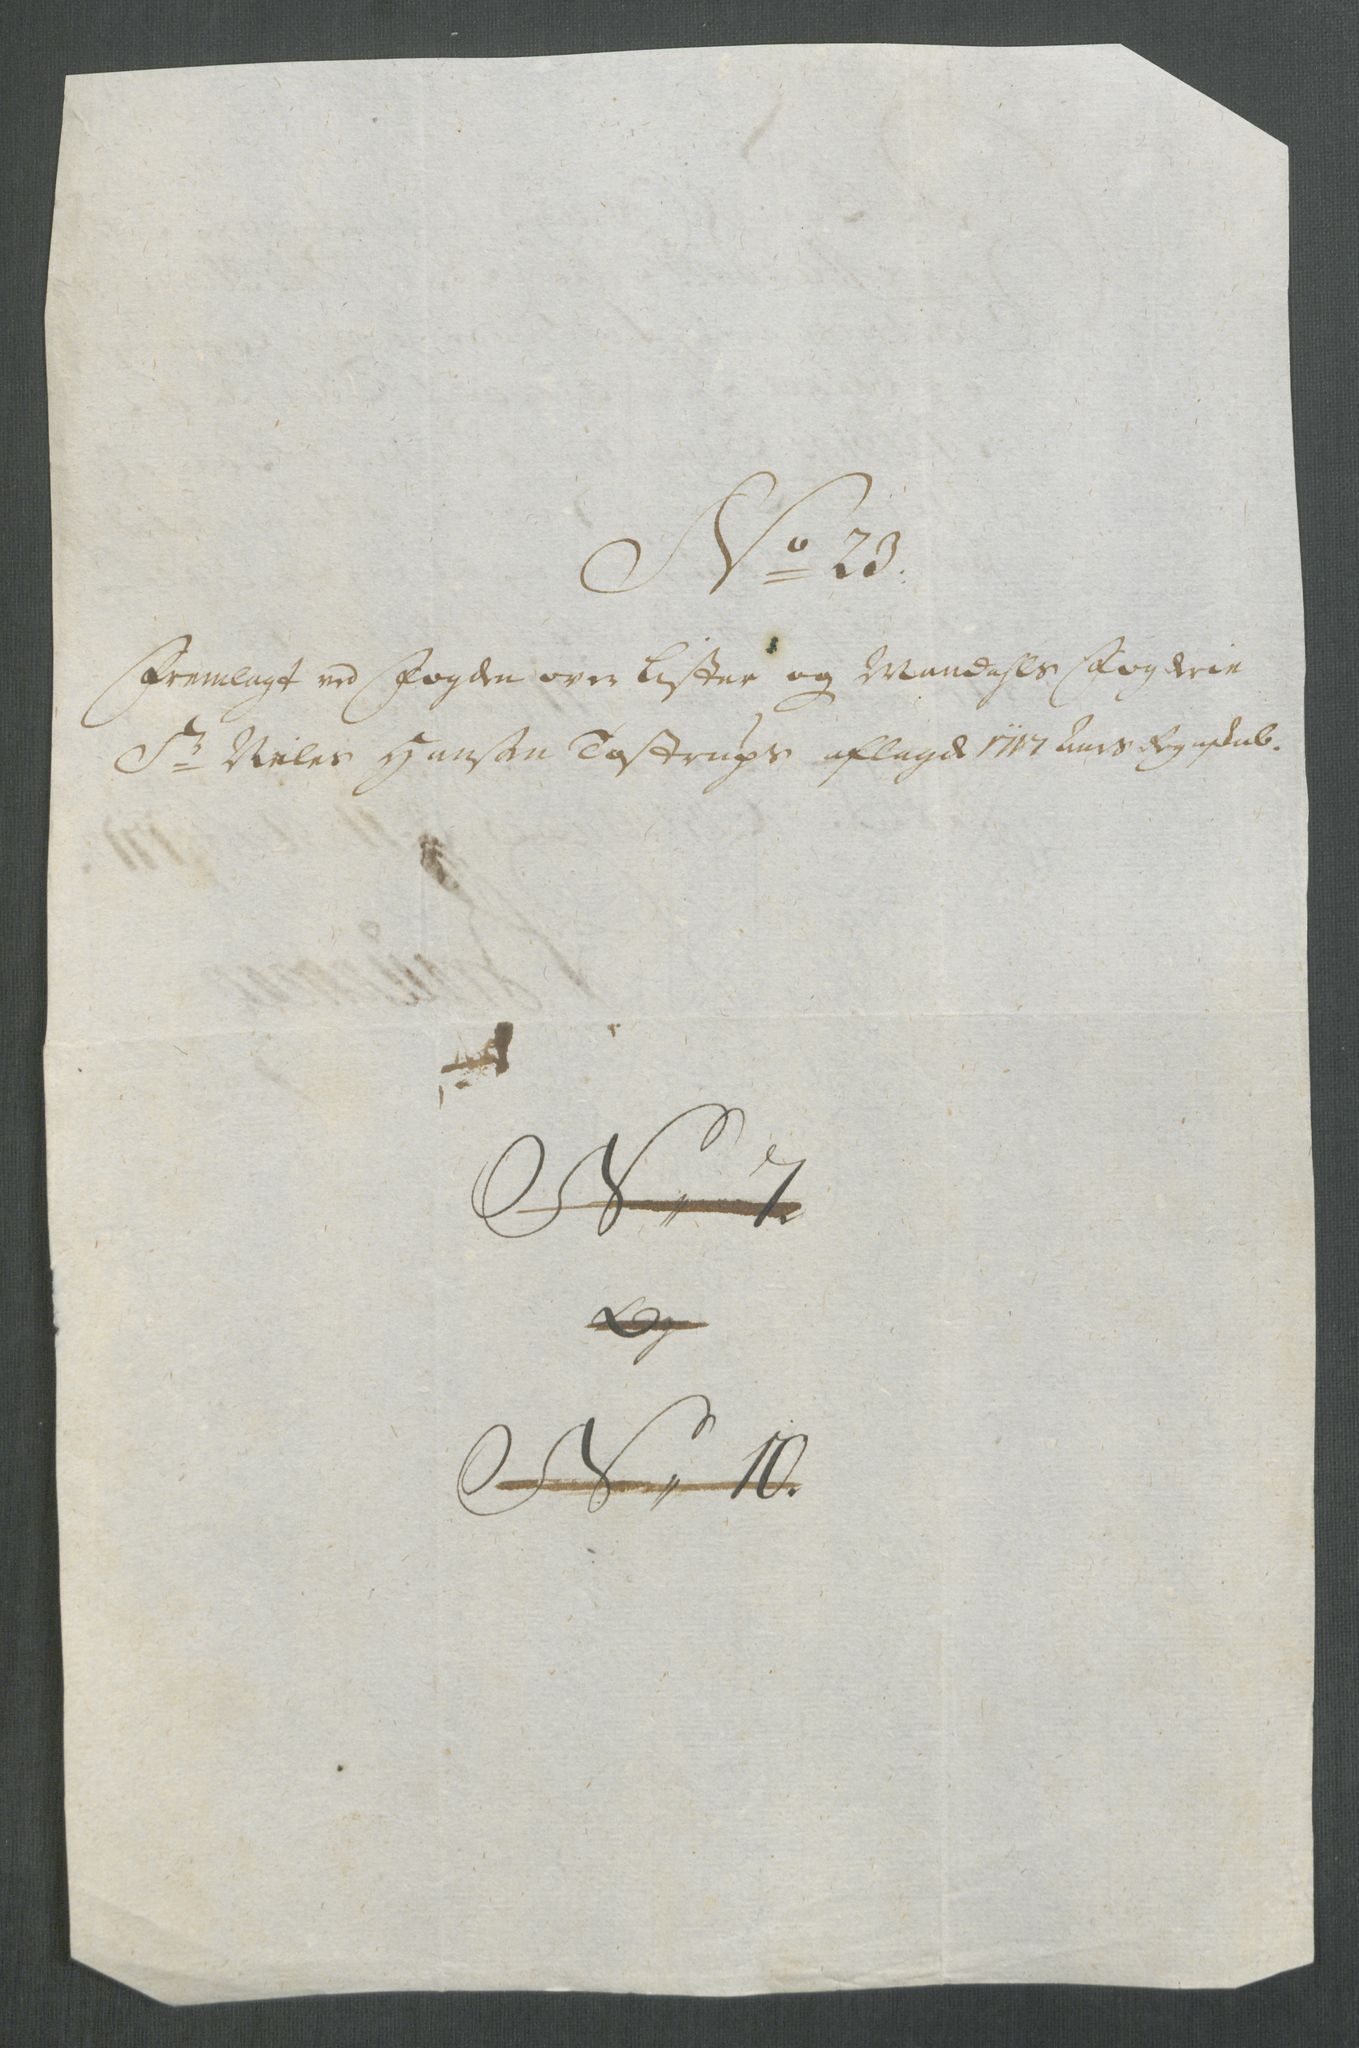 No 23.
Fremlagt ved Fogden over Lister og Mandahls Fogderie
Sr Neils Hansen Tostrups aflagde 1717 Aars Regnskab.
N. 7.
Og
N. 10.